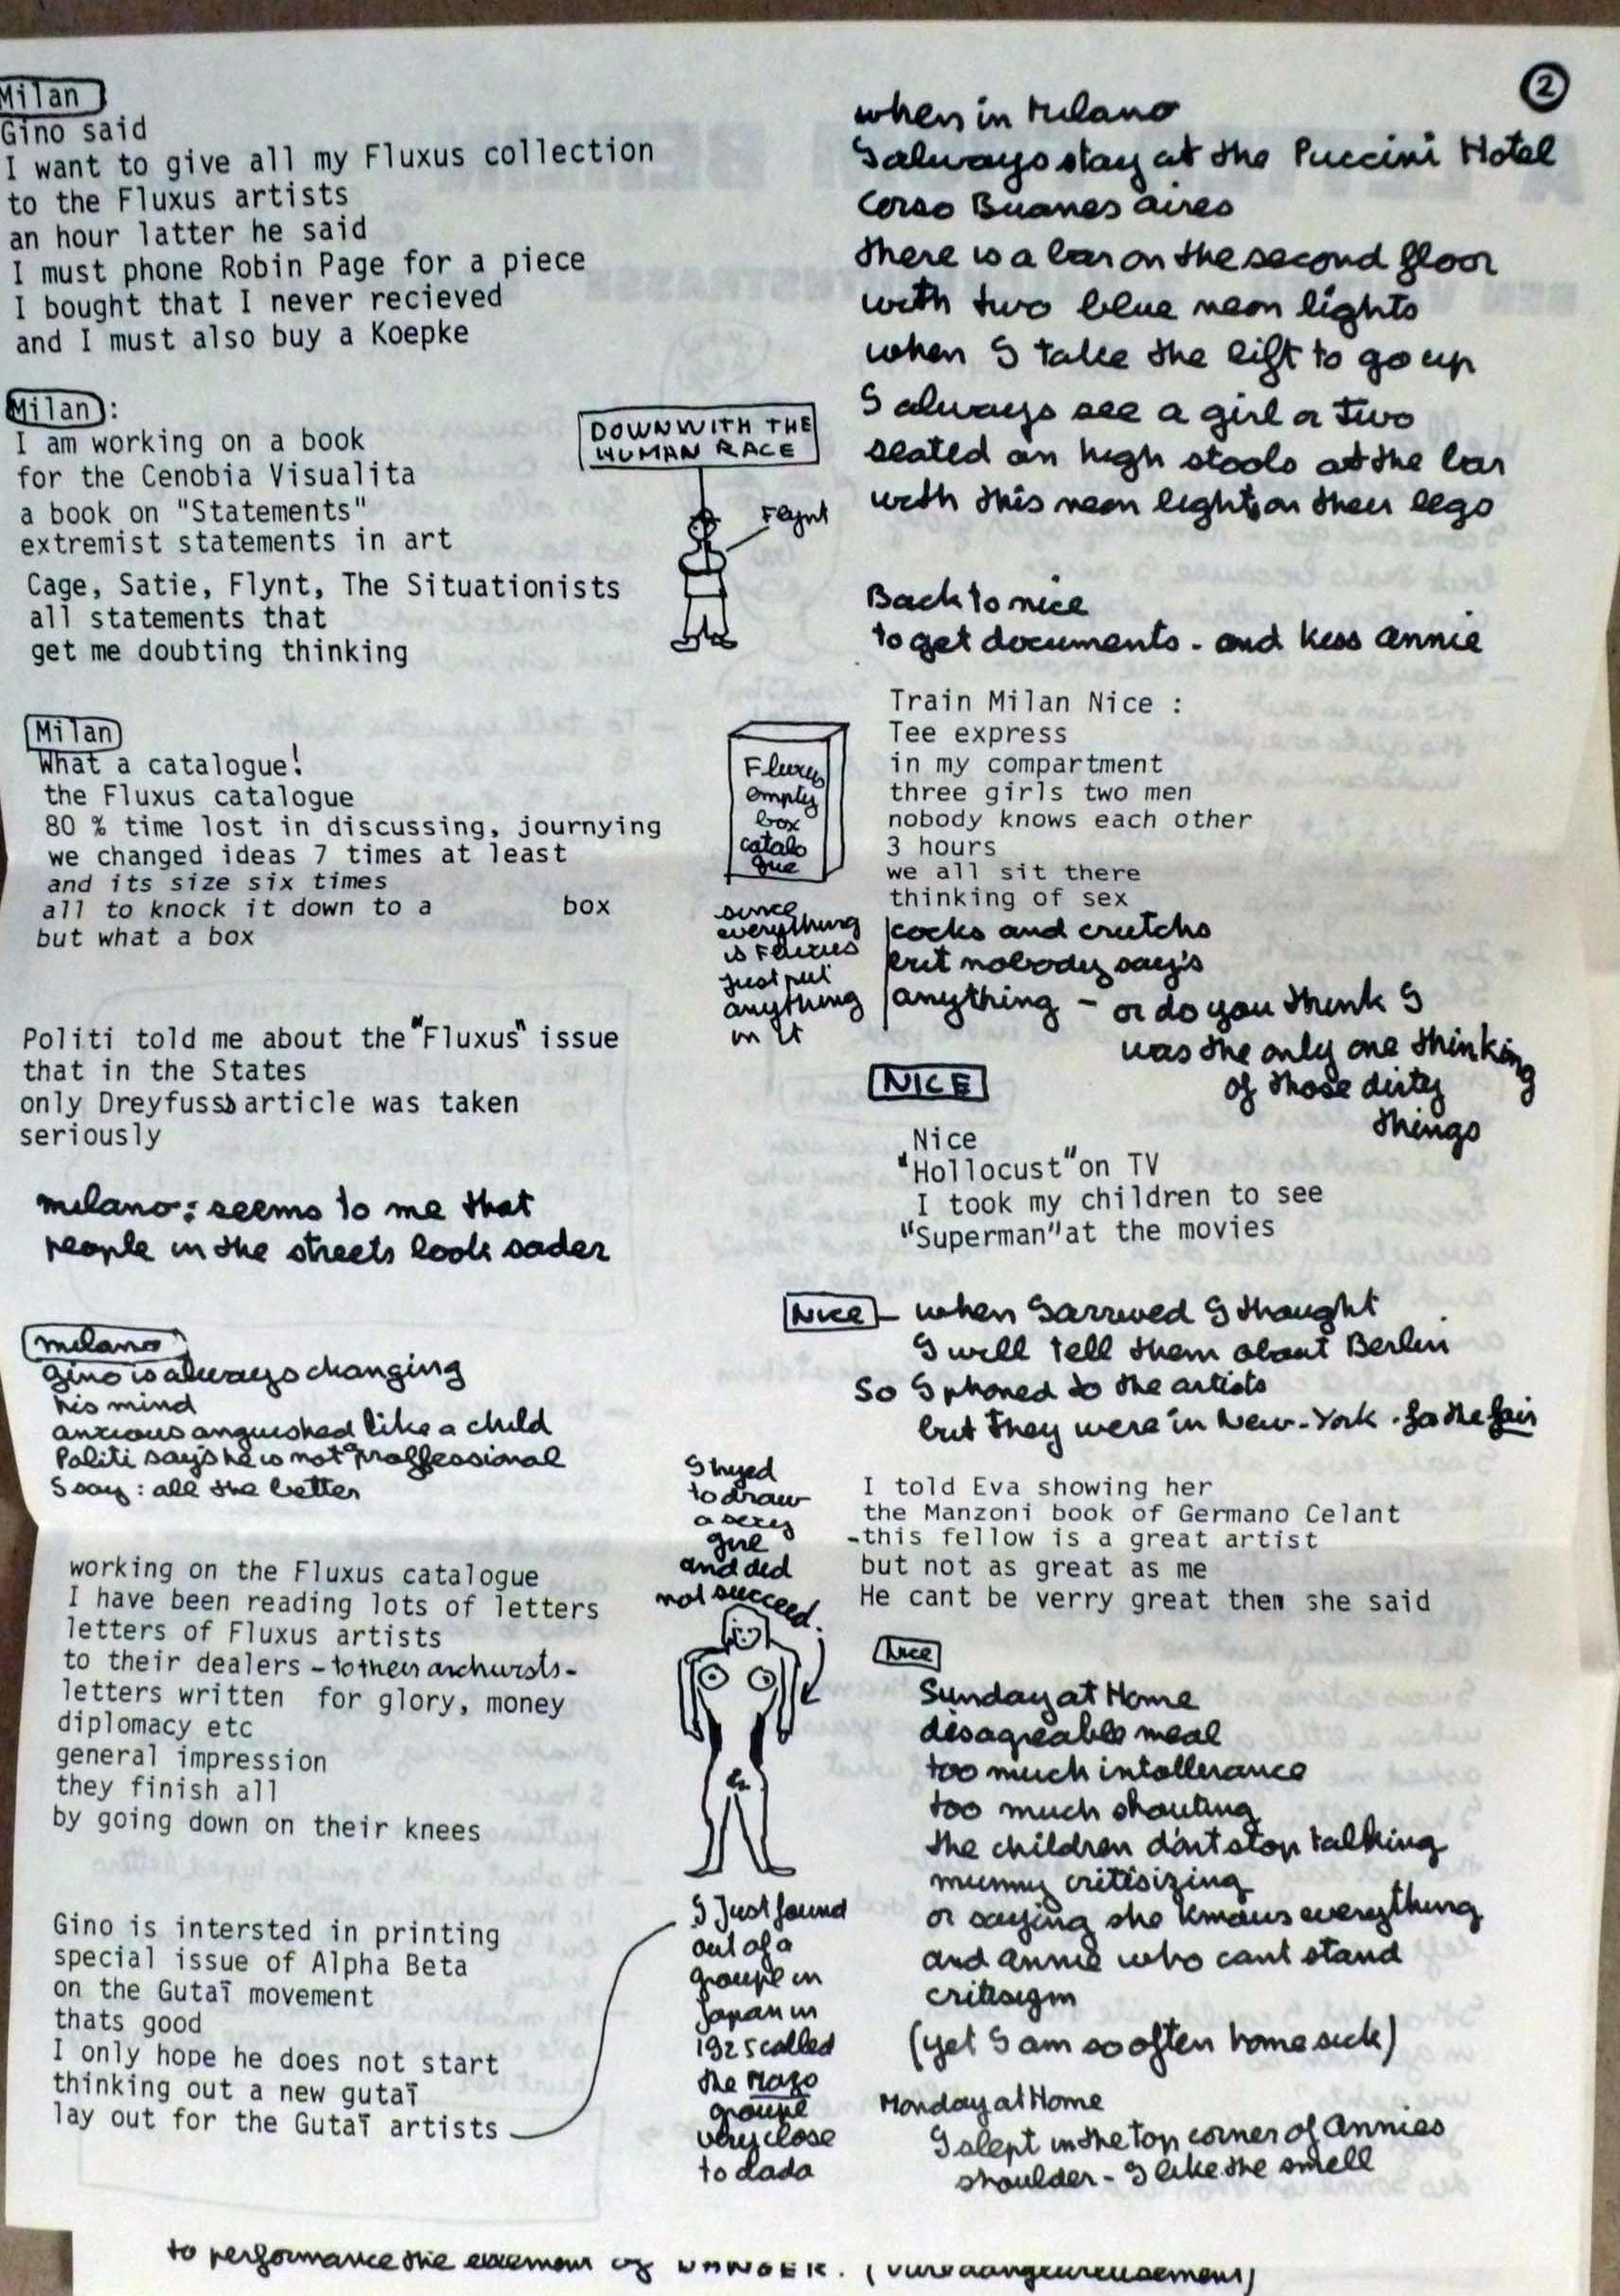 2
Milan
Gino said
I want to give all my Fluxus collection
to the Fluxus artists
an hour latter he said
I must phone Robin Page for a piece
I bought that I never recieved
and I must also buy a Koepke
Milan :
I am working on a book
for the Cenobia Visualita
a book on "Statements"
extremist statements in art
Cage, Satie, Flynt, The Situationists
all statements that
get me doubting thinking
DOWN WITH THE
HUMAN RACE
Flynt
Milan
What a catalogue!
the Fluxus catalogue
80 % time lost in discussing, journying
we changed ideas 7 times at least
and its size six times
all to knock it down to a box
but what a box
Fluxus
empty
box
catalo
gue
since
everything
is Fluxus
just put
anything
in it
Politi told me about the "Fluxus" issue
that in the States
only Dreyfuss article was taken
seriously
milano : seems to me that
people in the streets look sader
milano
Gino is always changing
his mind
anxious anguished like a child
Politi say's he is not proffessional
I say : all the better
working on the Fluxus catalogue
I have been reading lots of letters
letters of Fluxus artists
to their dealers - to their archivists -
letters written for glory, money
diplomacy etc
general impression
they finish all
by going down on their knees
I tryed
to draw
a sexy
girl
and did
not succeed.
Gino is intersted in printing
special issue of Alpha Beta
on the Gutaï movement
thats good
I only hope he does not start
thinking out a new gutaï
lay out for the Gutaï artists
I Just found
out of a
groupe in
Japan in
1925 called
the Mavo
groupe
very close
to dada
when in Milano
I always stay at the Puccini Hotel
Corso Buanes aires
there is a bar on the second floor
with two blue neon lights
when I take the lift to go up
I always see a girl or two
seated on high stools at the bar
with this neon light on their legs
Back to nice
to get documents - and kiss Annie
Train Milan Nice :
Tee express
in my compartment
three girls two men
nobody knows each other
3 hours
we all sit there
thinking of sex
cocks and crutchs
but nobody say's
anything - or do you think I
was the only one thinking
of those dirty
things
NICE
Nice
"Hollocust" on TV
I took my children to see
"Superman" at the movies
Nice - when I arrived I thought
I will tell them about Berlin
So I phoned to the artists
but they were in New-York . for the fair
I told Eva showing her
the Manzoni book of Germano Celant
-this fellow is a great artist
but not as great as me
He cant be verry great then she said
Nice
Sunday at Home
disagreable meal
too much intollerance
too much shouting
the children dont stop talking
mummy critisizing
or saying she knows everything
and Annie who cant stand
critisism
(yet I am so often home sick)
Monday at Home
I slept in the top corner of Annies
shoulder - I like the smell
to performance the